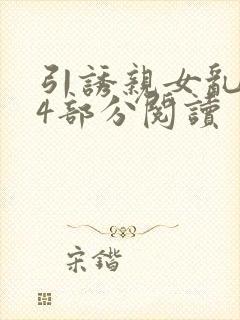 引誘親女亂
4部分閱讀
宋鍇